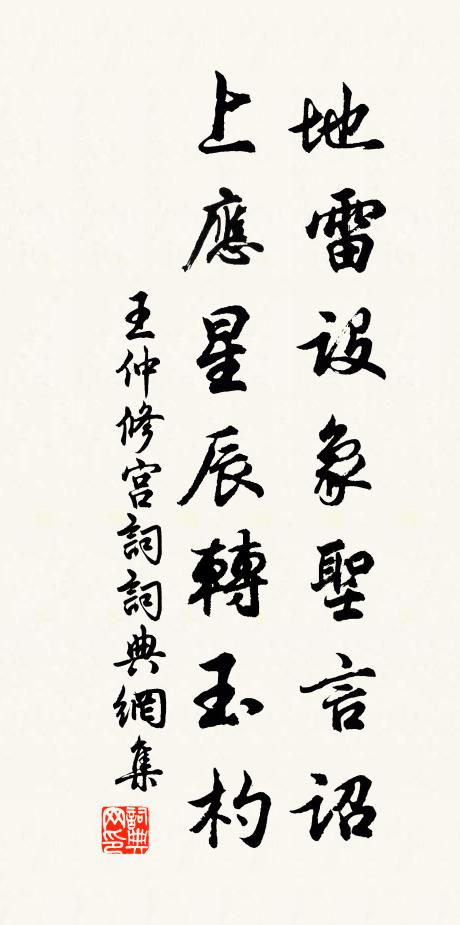 地雷設象聖言詔
上應星辰轉玉杓
王仲修宫詞詞典網集
詞典網印